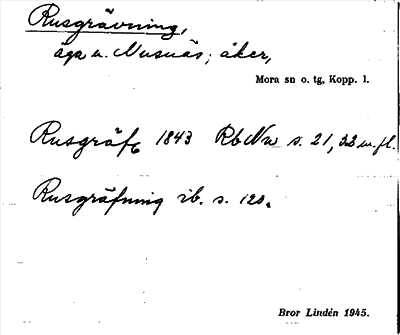 Rusgrävning,
äga u. Nusnäs; åker,
Mora sn o. tg, Kopp. l.
Rusgräfv 1843 RbNu s. 21, 32 m.fl.
Rusgräfning ib. s. 120.
Bror Lindén 1945.